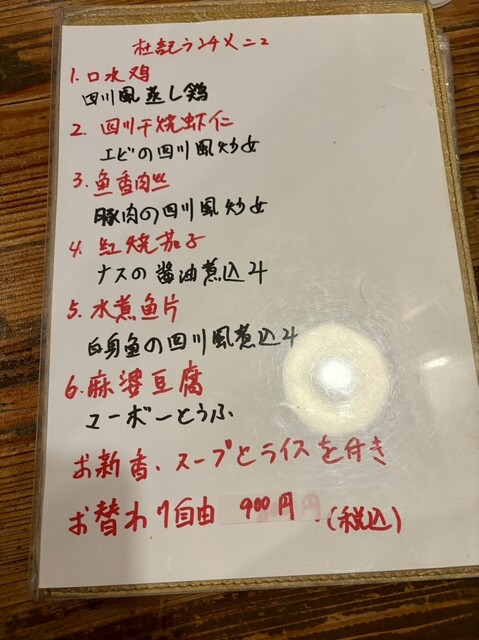 杜記ランチメニュ
1. 口水鸡
四川風蒸し鶏
2. 四川干烧虾仁
エビの四川風炒め
3. 鱼香肉丝
豚肉の四川風炒め
4. 红烧茄子
ナスの醤油煮込み
5. 水煮鱼片
白身魚の四川風煮込み
6. 麻婆豆腐
マーボーとうふ
お新香、スープとライスを付き
お替わり自由 900円 (税込)